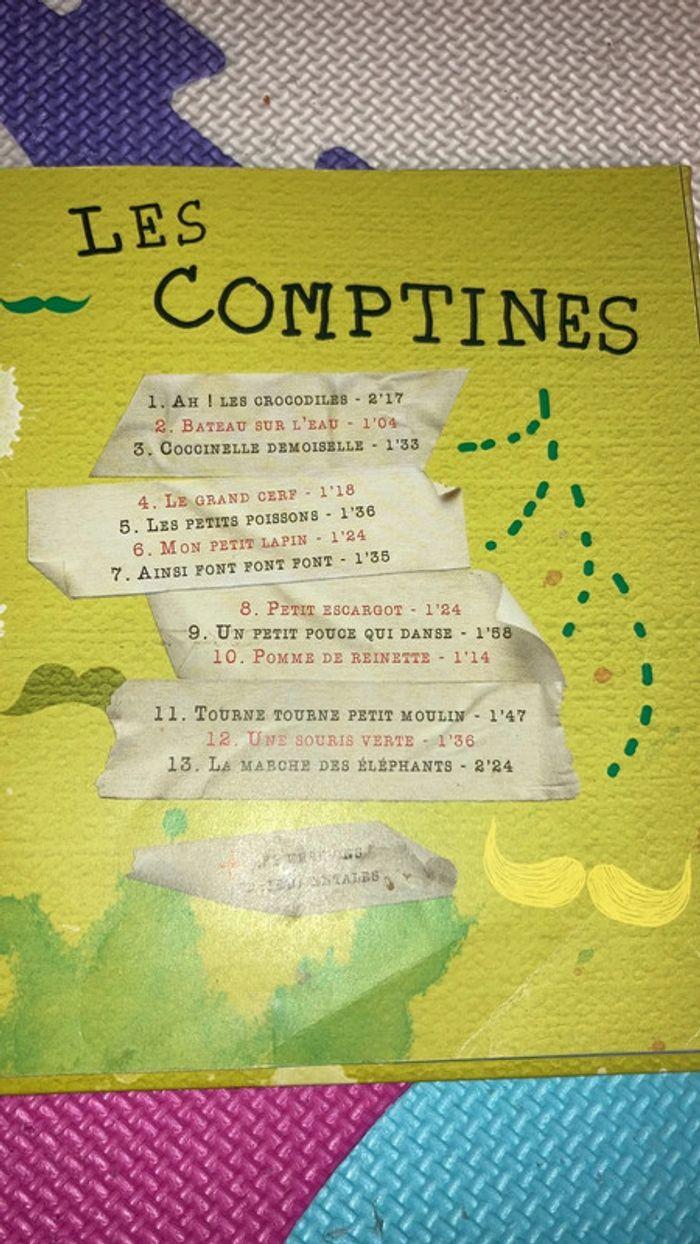 LES
COMPTINES
1. AH ! LES CROCODILES - 2'17
2. BATEAU SUR L'EAU - 1'04
3. COCCINELLE DEMOISELLE - 1'33
4. LE GRAND CERF - 1'18
5. LES PETITS POISSONS - 1'36
6. MON PETIT LAPIN - 1'24
7. AINSI FONT FONT FONT - 1'35
8. PETIT ESCARGOT - 1'24
9. UN PETIT POUCE QUI DANSE - 1'58
10. POMME DE REINETTE - 1'14
11. TOURNE TOURNE PETIT MOULIN - 1'47
12. UNE SOURIS VERTE - 1'36
13. LA MARCHE DES ÉLÉPHANTS - 2'24